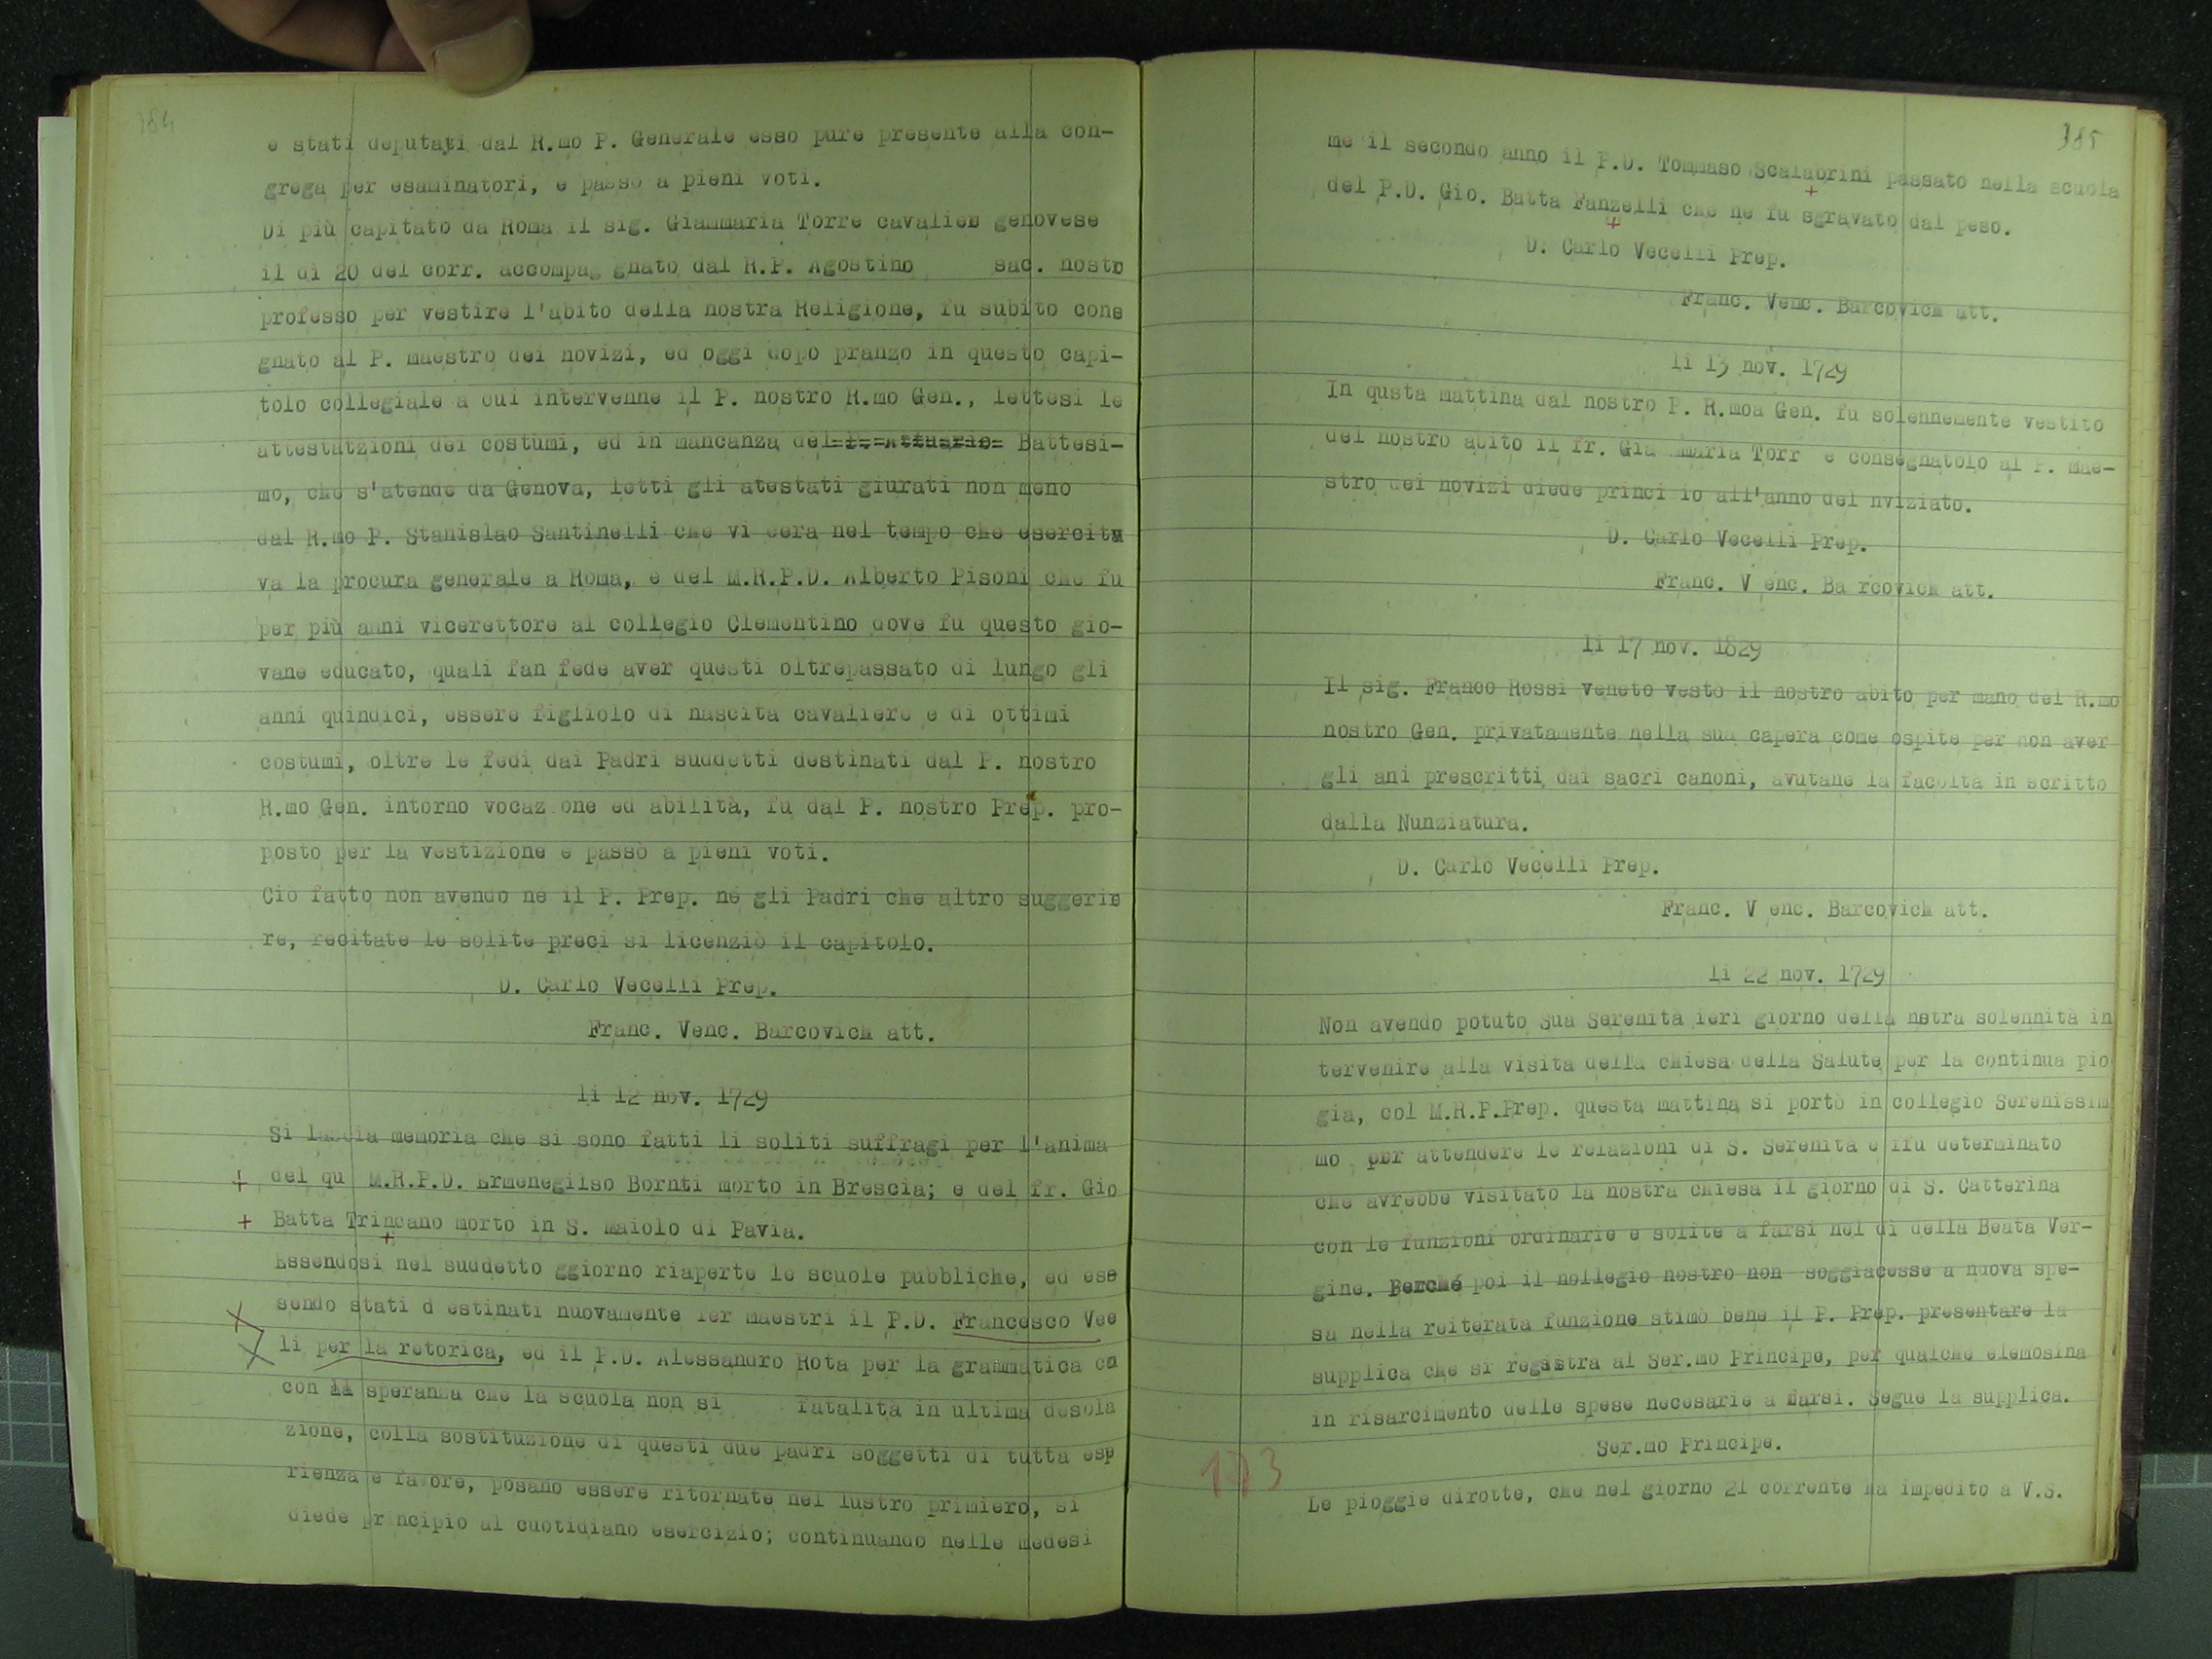 384
e stati deputati dal R.mo P. Generale esso pure presente alla con-
grega per esaminatori, e passò a pieni voti.
Di più capitato da Roma il sig. Giammaria Torre cavalier genovese
il di 20 del corr. accompag gnato dal R.P. Agostino sac. nostr
professo per vestire l'abito della nostra Religione, fu subito cons
gnato al P. maestro dei novizi, ed oggi dopo pranzo in questo capi-
tolo collegiale a cui intervenne il P. nostro R.mo Gen., lettesi le
attestatzioni dei costumi, ed in mancanza del P. Attuario Battesi-
mo, che s'atende da Genova, letti gli atestati giurati non meno
dal R.mo P. Stanislao Santinelli che vi cera nel tempo che esercita
va la procura generale a Roma, e del M.R.P.D. Alberto Pisoni che fu
per più anni vicerettore al collegio Clementino dove fu questo gio-
vane educato, quali fan fede aver questi oltrepassato di lungo gli
anni quindici, essere figliolo di nascita cavaliere e di ottimi
costumi, oltre le fedi dai Padri suddetti destinati dal P. nostro
R.mo Gen. intorno vocaz one ed abilità, fu dal P. nostro Prep. pro-
posto per la vestizione e passò a pieni voti.
Ciò fatto non avendo né il P. Prep. né gli Padri che altro suggerir
re, recitate le solite preci si licenziò il capitolo.
D. Carlo Vecelli Prep.
Franc. Venc. Barcovich att.
li 12 nov. 1729
Si lascia memoria che si sono fatti li soliti suffragi per l'anima
+ del qu M.R.P.D. Ermenegilso Bornti morto in Brescia; e del fr. Gio
+ Batta Trincano morto in S. Maiolo di Pavia.
Essendosi nel suddetto ggiorno riaperte le scuole pubbliche, ed ess
sendo stati d estinati nuovamente per maestri il P.D. Francesco Vee
li per la retorica, ed il P.D. Alessandro Rota per la grammatica co
con la speranza che la scuola non si fatalità in ultima desola
zione, colla sostituzione di questi due padri soggetti di tutta esp
rienza e favore, posano essere ritornate nel lustro primiero, si
diede pr ncipio al cuotidiano esercizio; continuando nelle medesi
385
me il secondo anno il P.D. Tommaso Scalabrini passato nella scuola
del P.D. Gio. Batta Fanzelli che ne fu sgravato dal peso.
D. Carlo Vecelli Prep.
Franc. Venc. Barcovich att.
li 13 nov. 1729
In qusta mattina dal nostro P. R.moa Gen. fu solennemente vestito
del nostro abito il fr. Gia mmaria Torr e consegnatolo al P. mae-
stro dei novizi diede princi io all'anno del nviziato.
D. Carlo Vecelli Prep.
Franc. V enc. Ba rcovich att.
li 17 nov. 1829
Il sig. Franco Rossi veneto vestò il nostro abito per mano del R.mo
nostro Gen. privatamente nella sua capera come ospite per non aver
gli ani prescritti dai sacri canoni, avutane la facoltà in scritto
dalla Nunziatura.
D. Carlo Vecelli Prep.
Franc. V enc. Barcovich att.
li 22 nov. 1729
Non avendo potuto Sua Serenità ieri giorno della nstra solennità in
tervenire alla visita della chiesa della Salute per la continua pio
gia, col M.R.P.Prep. questa mattina si portò in collegio Serenissim
mo per attendere le relazioni di S. Serenità e ffu determinato
che avrebbe visitato la nostra chiesa il giorno di S. Catterina
con le funzioni ordinarie e solite a farsi nel dì della Beata Ver-
gine. Perché poi il nollegio nostro non soggiacesse a nuova spe-
sa nella reiterata funzione stimò bene il P. Prep. presentare la
supplica che si regsistra al Ser.mo Principe, per qualche elemosina
in risarcimento delle spese necesarie a farsi. Segue la supplica.
Ser.mo Principe.
173
Le pioggie dirotte, che nel giorno 21 corrente ha impedito a V.S.